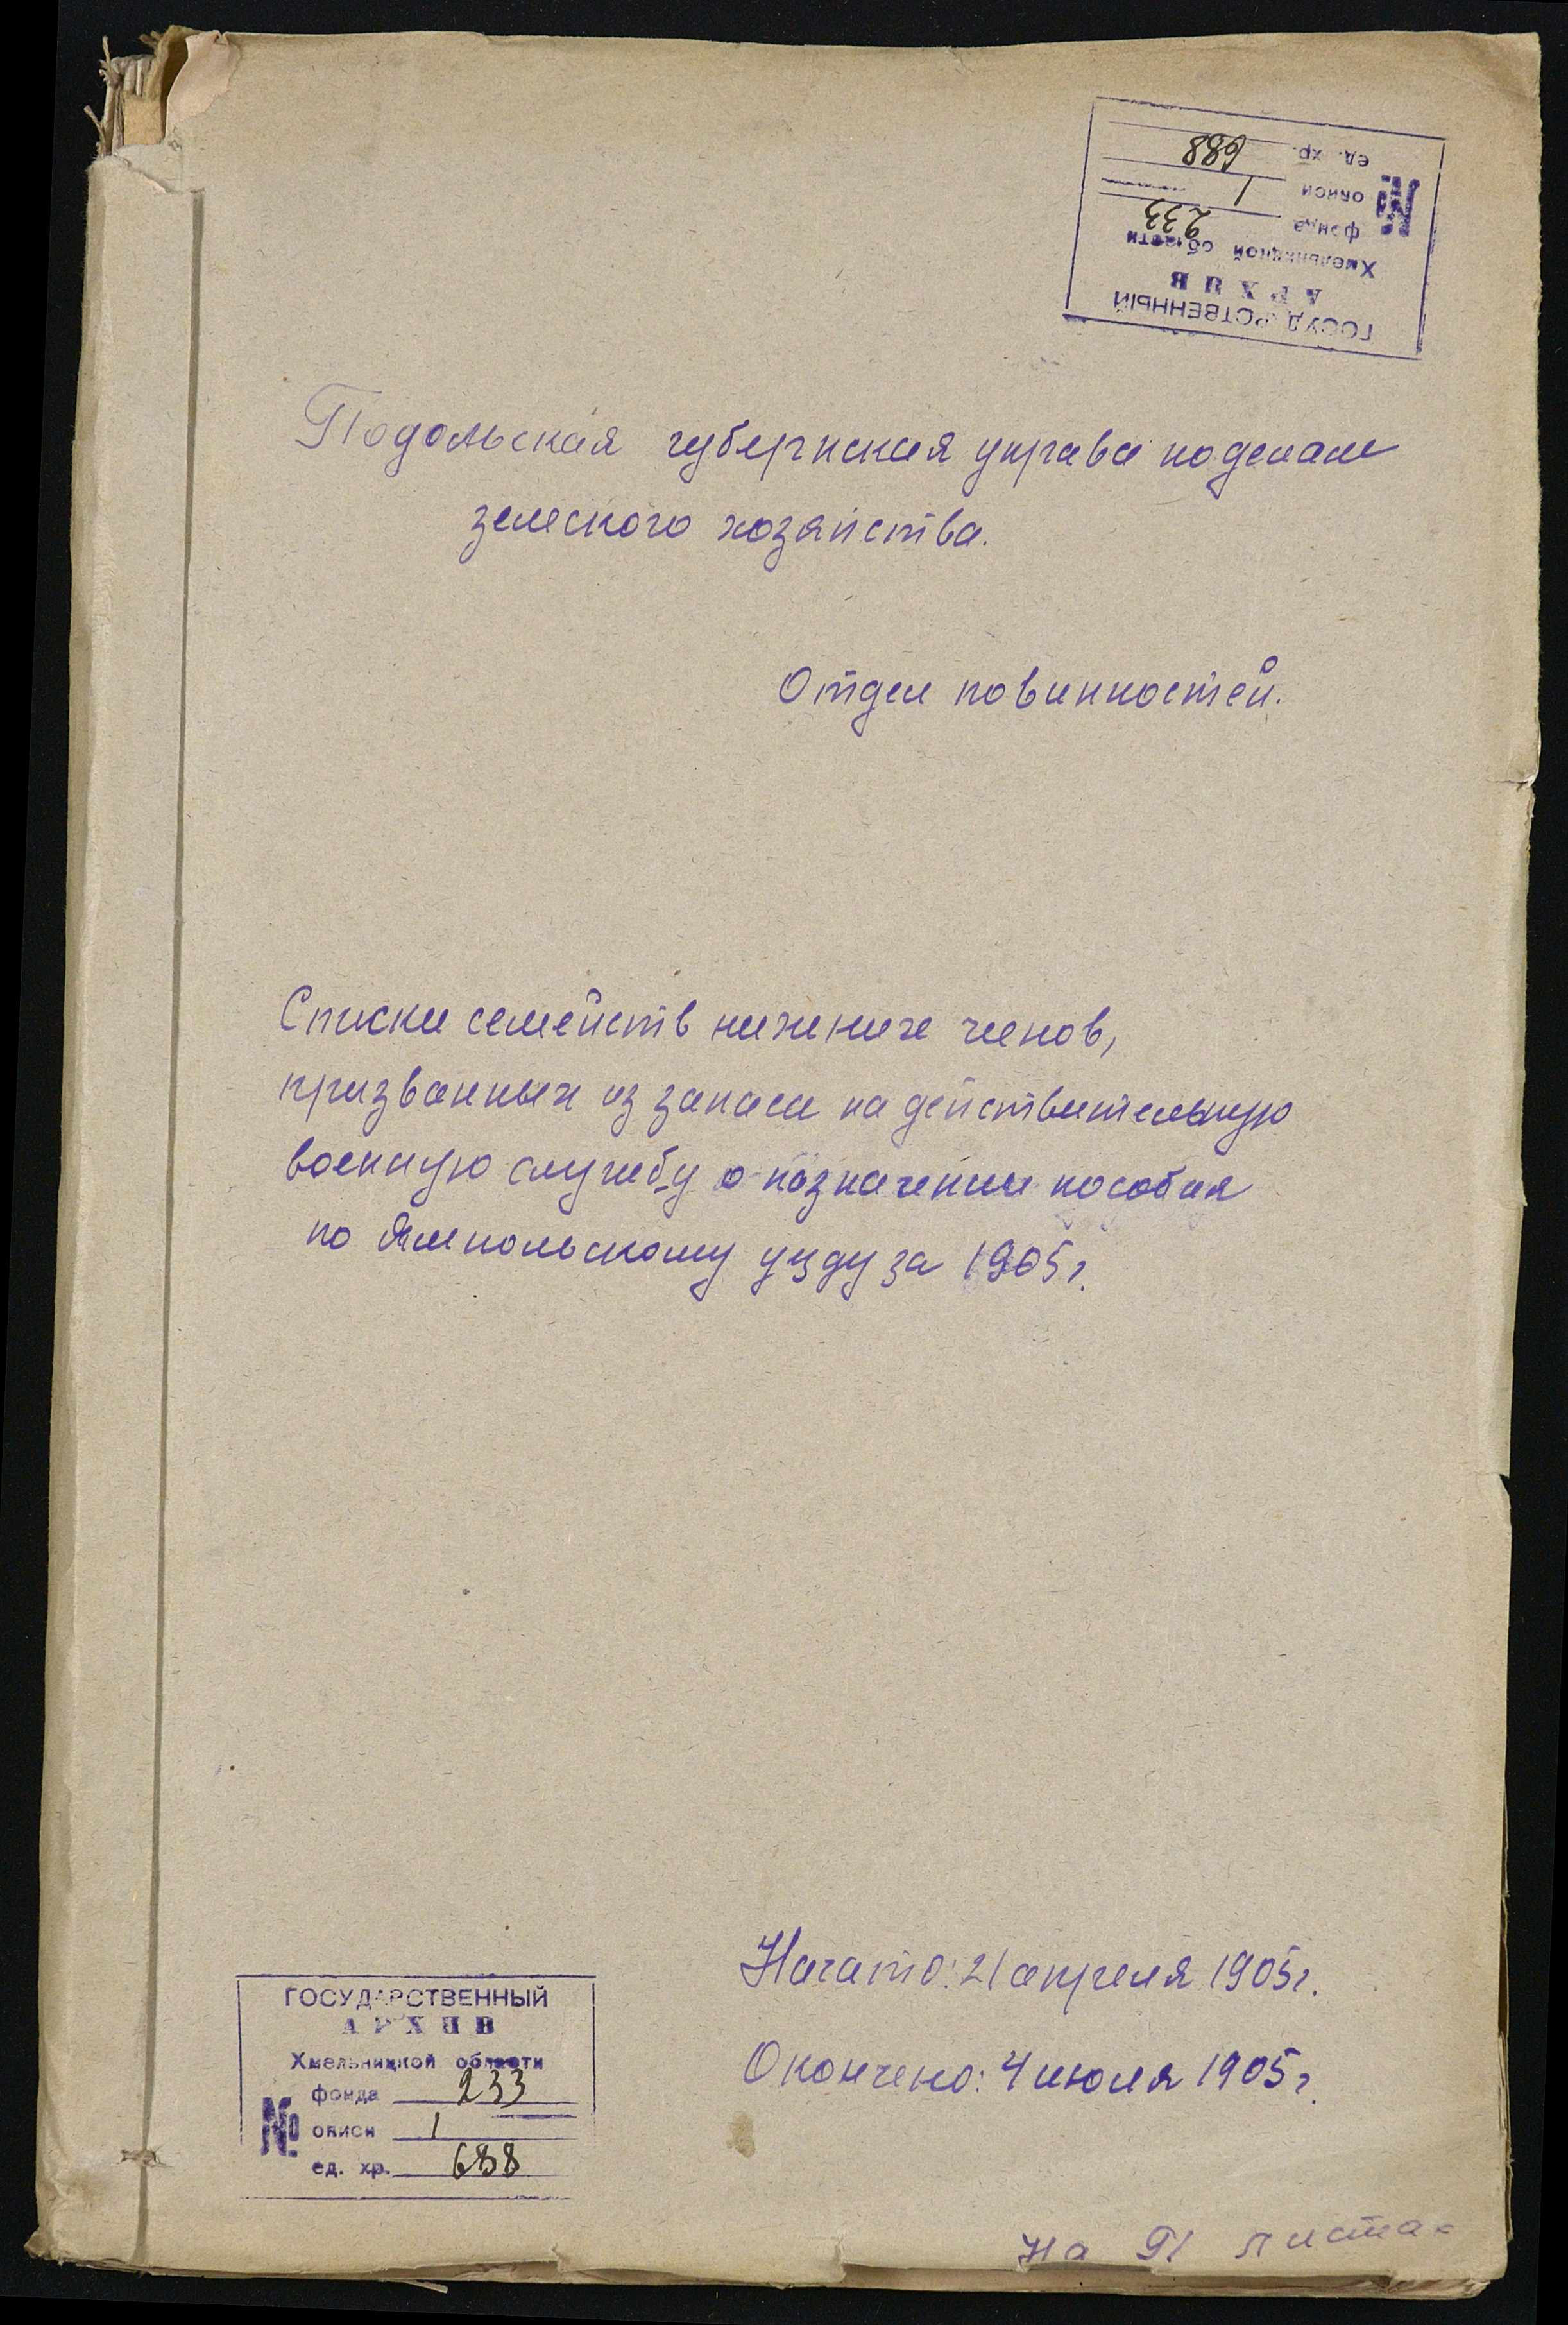 ГОСУДАРСТВЕННЫЙ
АРХИВ
Хмельницкой области
№
фонда 233
описи 1
ед. хр. 688
Подольская губернская управа по делам
земского хозяйства.
Отдел повинностей.
Списки семейств нижних чинов,
призванных из запаса на действительную
военную службу о назначении пособия
по Ямпольскому уезду за 1905 г.
Начато: 21 апреля 1905 г.
Окончено: 4 июля 1905 г.
ГОСУДАРСТВЕННЫЙ
АРХИВ
Хмельницкой области
№
фонда 233
описи 1
ед. хр. 688
На 91 листах